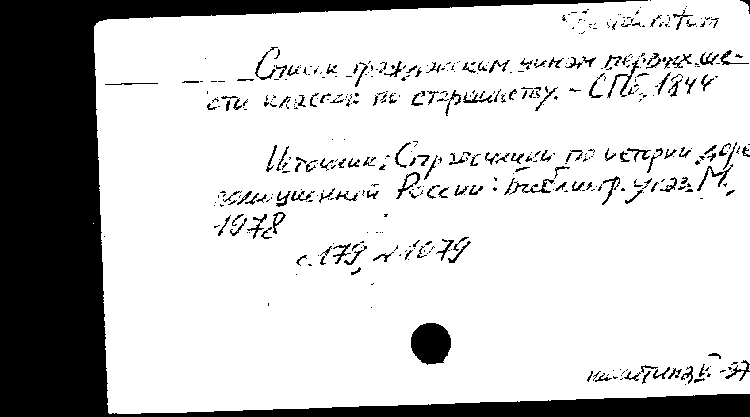 Desideratum
Список гражданским чинам первых ше-
сти классов по старшинству. – СПб, 1844
Источник: Справочники по истории доре
волюционной России: Библиогр. указ. М.,
1978
с. 179, № 1079